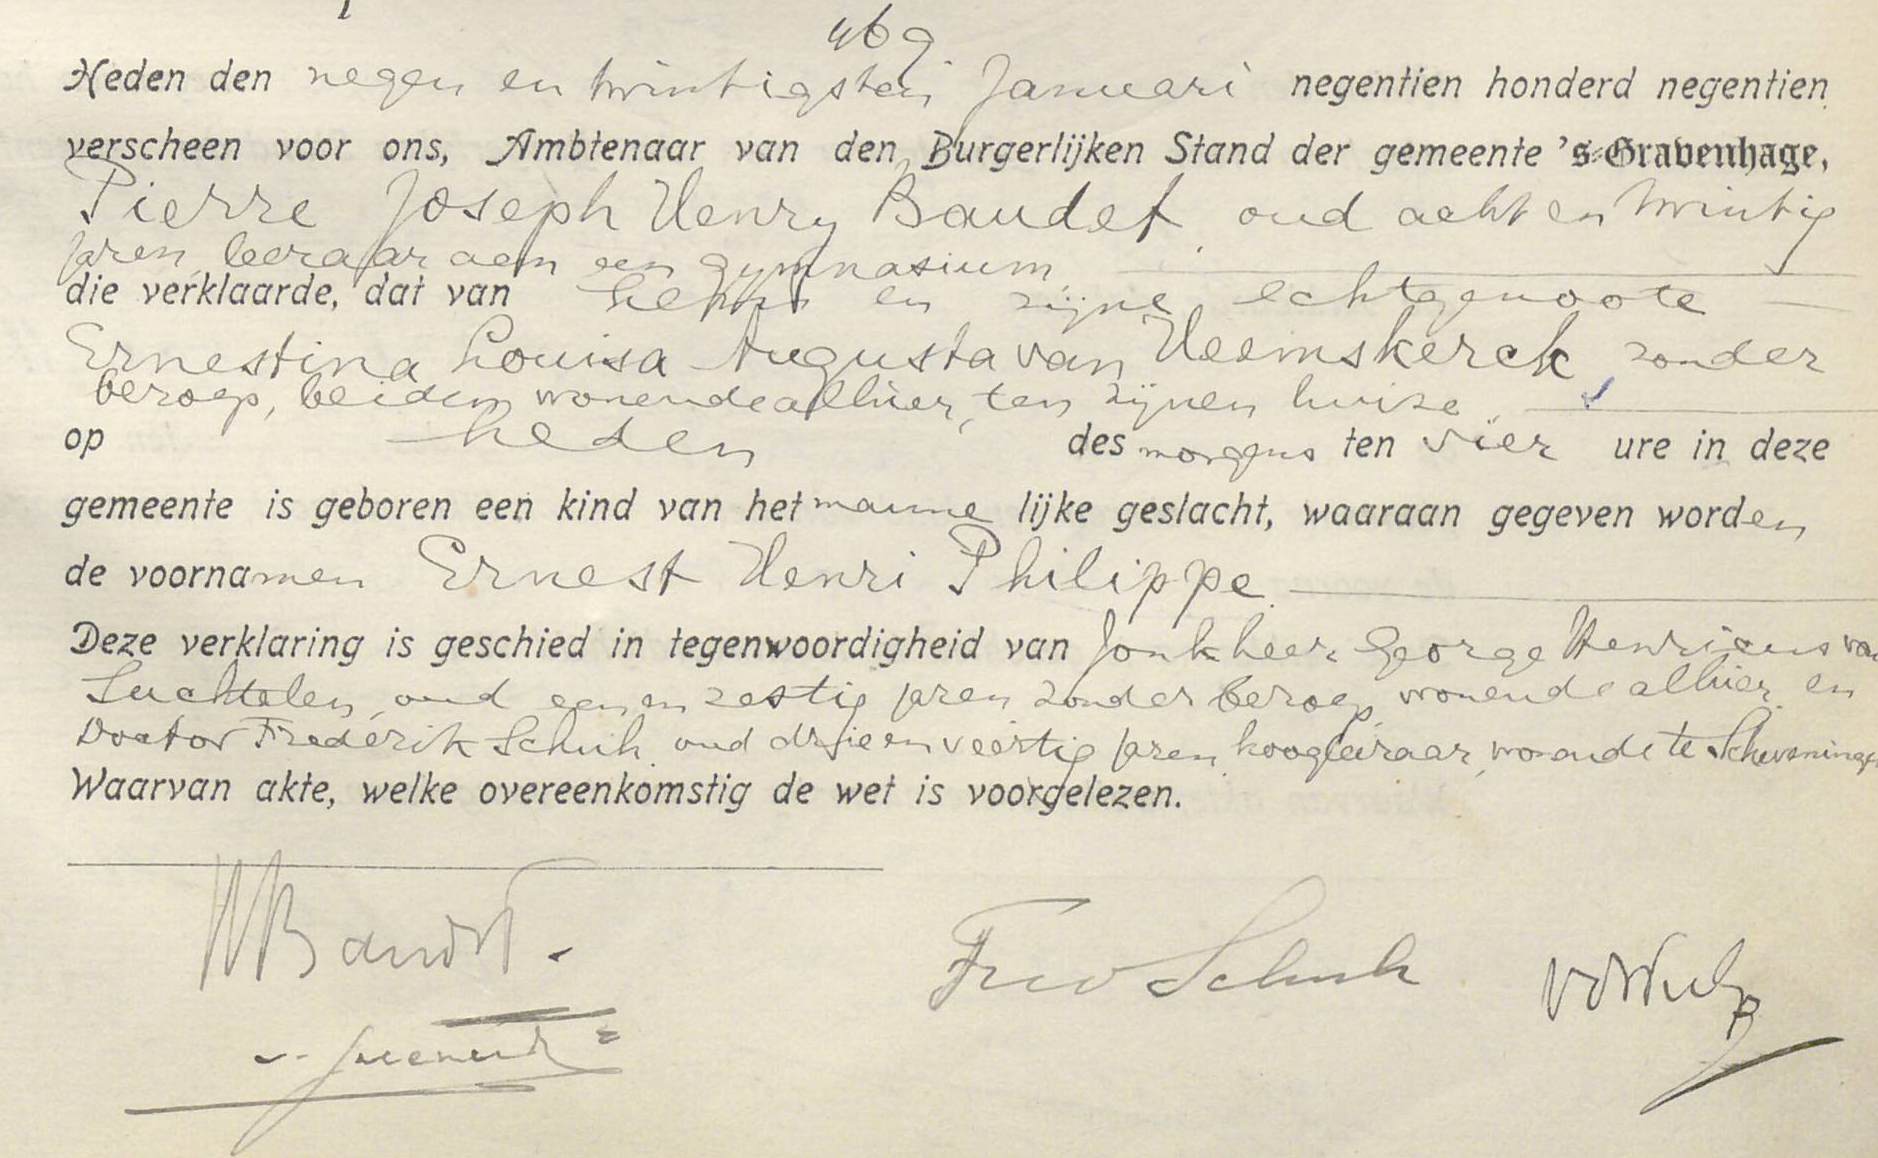 469
Heden den negen en twintigsten Januari negentien honderd negentien
verscheen voor ons, Ambtenaar van den Burgerlijken Stand der gemeente 's-Gravenhage,
Pierre Joseph Henry Baudet, oud acht en twintig
jaren, leeraar aan een gymnasium
die verklaarde, dat van hem en zijne echtgenoote
Ernestina Louisa Augusta van Heemskerck, zonder
beroep, beiden wonende alhier, ten zijnen huize,
op heden des morgens ten vier ure in deze
gemeente is geboren een kind van het mannelijke geslacht, waaraan gegeven worden
de voornamen Ernest Henri Philippe
Deze verklaring is geschied in tegenwoordigheid van Jonkheer George Henricus van
Suchtelen, oud een en zestig jaren zonder beroep, wonende alhier, en
Doctor Frederik Schuh, oud drie en veertig jaren, hoogleeraar, wonende te Scheveningen
Waarvan akte, welke overeenkomstig de wet is voorgelezen.
Baudet.
Fred Schuh